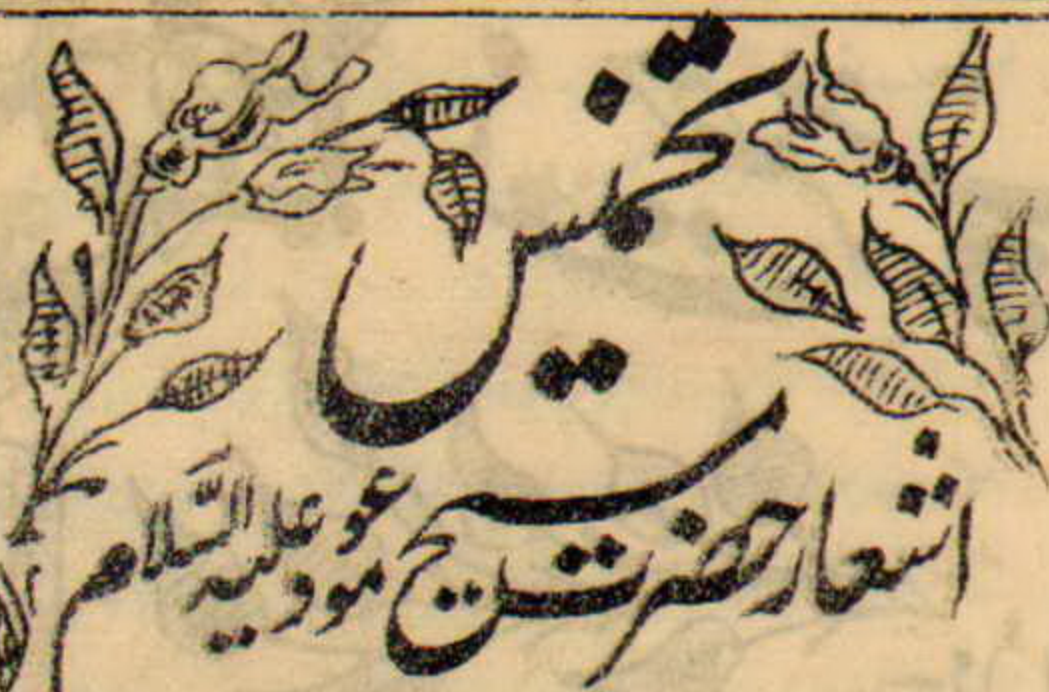 تخمیس
اشعار حضرت مسیح موعود علیہ السّلام